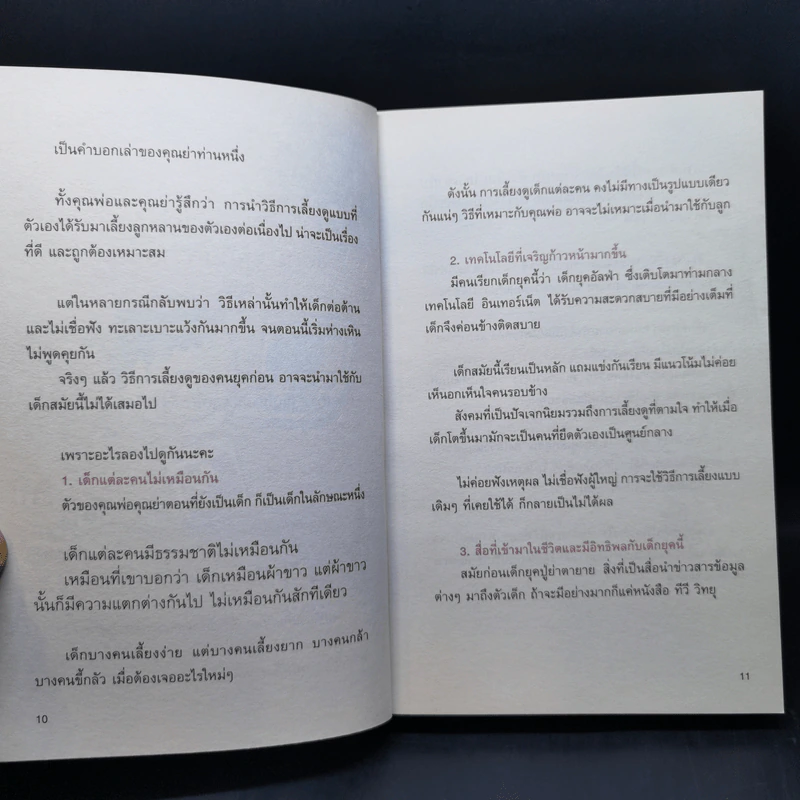 เป็นคำบอกเล่าของคุณย่าท่านหนึ่ง
ทั้งคุณพ่อและคุณย่ารู้สึกว่า การนำวิธีการเลี้ยงดูแบบที่
ตัวเองได้รับมาเลี้ยงลูกหลานของตัวเองต่อเนื่องไป น่าจะเป็นเรื่อง
ที่ดี และถูกต้องเหมาะสม
แต่ในหลายกรณีกลับพบว่า วิธีเหล่านั้นทำให้เด็กต่อต้าน
และไม่เชื่อฟัง ทะเลาะเบาะแว้งกันมากขึ้น จนตอนนี้เริ่มห่างเหิน
ไม่พูดคุยกัน
จริงๆ แล้ว วิธีการเลี้ยงดูของคนยุคก่อน อาจจะนำมาใช้กับ
เด็กสมัยนี้ไม่ได้เสมอไป
เพราะอะไรลองไปดูกันนะคะ
1. เด็กแต่ละคนไม่เหมือนกัน
ตัวของคุณพ่อคุณย่าตอนที่ยังเป็นเด็ก ก็เป็นเด็กในลักษณะหนึ่ง
เด็กแต่ละคนมีธรรมชาติไม่เหมือนกัน
เหมือนที่เขาบอกว่า เด็กเหมือนผ้าขาว แต่ผ้าขาว
นั้นก็มีความแตกต่างกันไป ไม่เหมือนกันสักทีเดียว
เด็กบางคนเลี้ยงง่าย แต่บางคนเลี้ยงยาก บางคนกล้า
บางคนขี้กลัว เมื่อต้องเจออะไรใหม่ๆ
10
ดังนั้น การเลี้ยงดูเด็กแต่ละคน คงไม่มีทางเป็นรูปแบบเดียว
กันแน่ๆ วิธีที่เหมาะกับคุณพ่อ อาจจะไม่เหมาะเมื่อนำมาใช้กับลูก
2. เทคโนโลยีที่เจริญก้าวหน้ามากขึ้น
มีคนเรียกเด็กยุคนี้ว่า เด็กยุคอัลฟ่า ซึ่งเติบโตมาท่ามกลาง
เทคโนโลยี อินเทอร์เน็ต ได้รับความสะดวกสบายที่มีอย่างเต็มที่
เด็กจึงค่อนข้างติดสบาย
เด็กสมัยนี้เรียนเป็นหลัก แถมแข่งกันเรียน มีแนวโน้มไม่ค่อย
เห็นอกเห็นใจคนรอบข้าง
สังคมที่เป็นปัจเจกนิยมรวมถึงการเลี้ยงดูที่ตามใจ ทำให้เมื่อ
เด็กโตขึ้นมามักจะเป็นคนที่ยึดตัวเองเป็นศูนย์กลาง
ไม่ค่อยฟังเหตุผล ไม่เชื่อฟังผู้ใหญ่ การจะใช้วิธีการเลี้ยงแบบ
เดิมๆ ที่เคยใช้ได้ ก็กลายเป็นไม่ได้ผล
3. สื่อที่เข้ามาในชีวิตและมีอิทธิพลกับเด็กยุคนี้
สมัยก่อนเด็กยุคปู่ย่าตายาย สิ่งที่เป็นสื่อนำข่าวสารข้อมูล
ต่างๆ มาถึงตัวเด็ก ถ้าจะมีอย่างมากก็แค่หนังสือ ทีวี วิทยุ
11